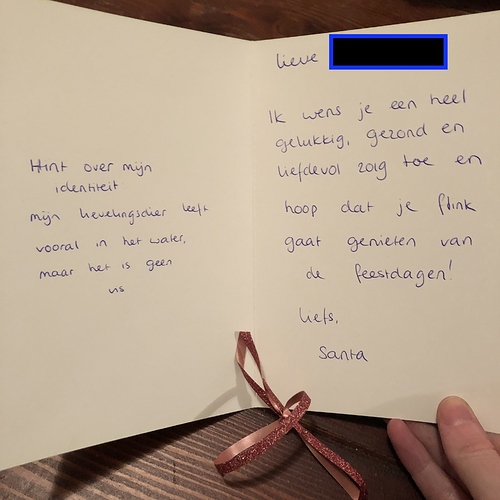 Hint over mijn
identiteit
mijn lievelingsdier leeft
vooral in het water,
maar het is geen
vis
lieve
Ik wens je een heel
gelukkig, gezond en
liefdevol 2019 toe en
hoop dat je flink
gaat genieten van
de feestdagen!
Liefs,
Santa